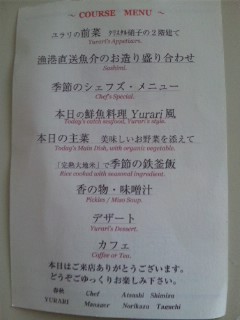 ～ COURSE MENU ～
ユラリの前菜 クリスタル硝子の２階建て
Yurari's Appetizers.
漁港直送魚介のお造り盛り合わせ
Sashimi.
季節のシェフズ・メニュー
Chef's Special.
本日の鮮魚料理 Yurari 風
Today's catch seafood, Yurari's style.
本日の主菜 美味しいお野菜を添えて
Today's Main Dish, with organic vegetable.
「完熟大地米」で季節の鉄釜飯
Rice cooked with seasonal ingredient.
香の物・味噌汁
Pickles / Miso Soup.
デザート
Yurari's Dessert.
カフェ
Coffee or Tea.
本日はご来店ありがとうございます。
どうぞごゆっくりお楽しみ下さい。
YURARI Chef Atsushi Shimizu
Manager Norikazu Taguchi